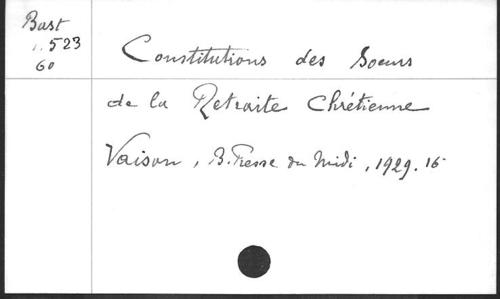 Bast
n. 523
60
Constitutions des Soeurs
de la Retraite Chrétienne
Vaison, B. Presse du Midi, 1929. 16